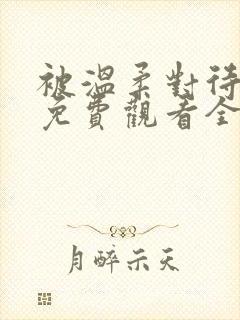 被溫柔對待
免費觀看全
月醉示天